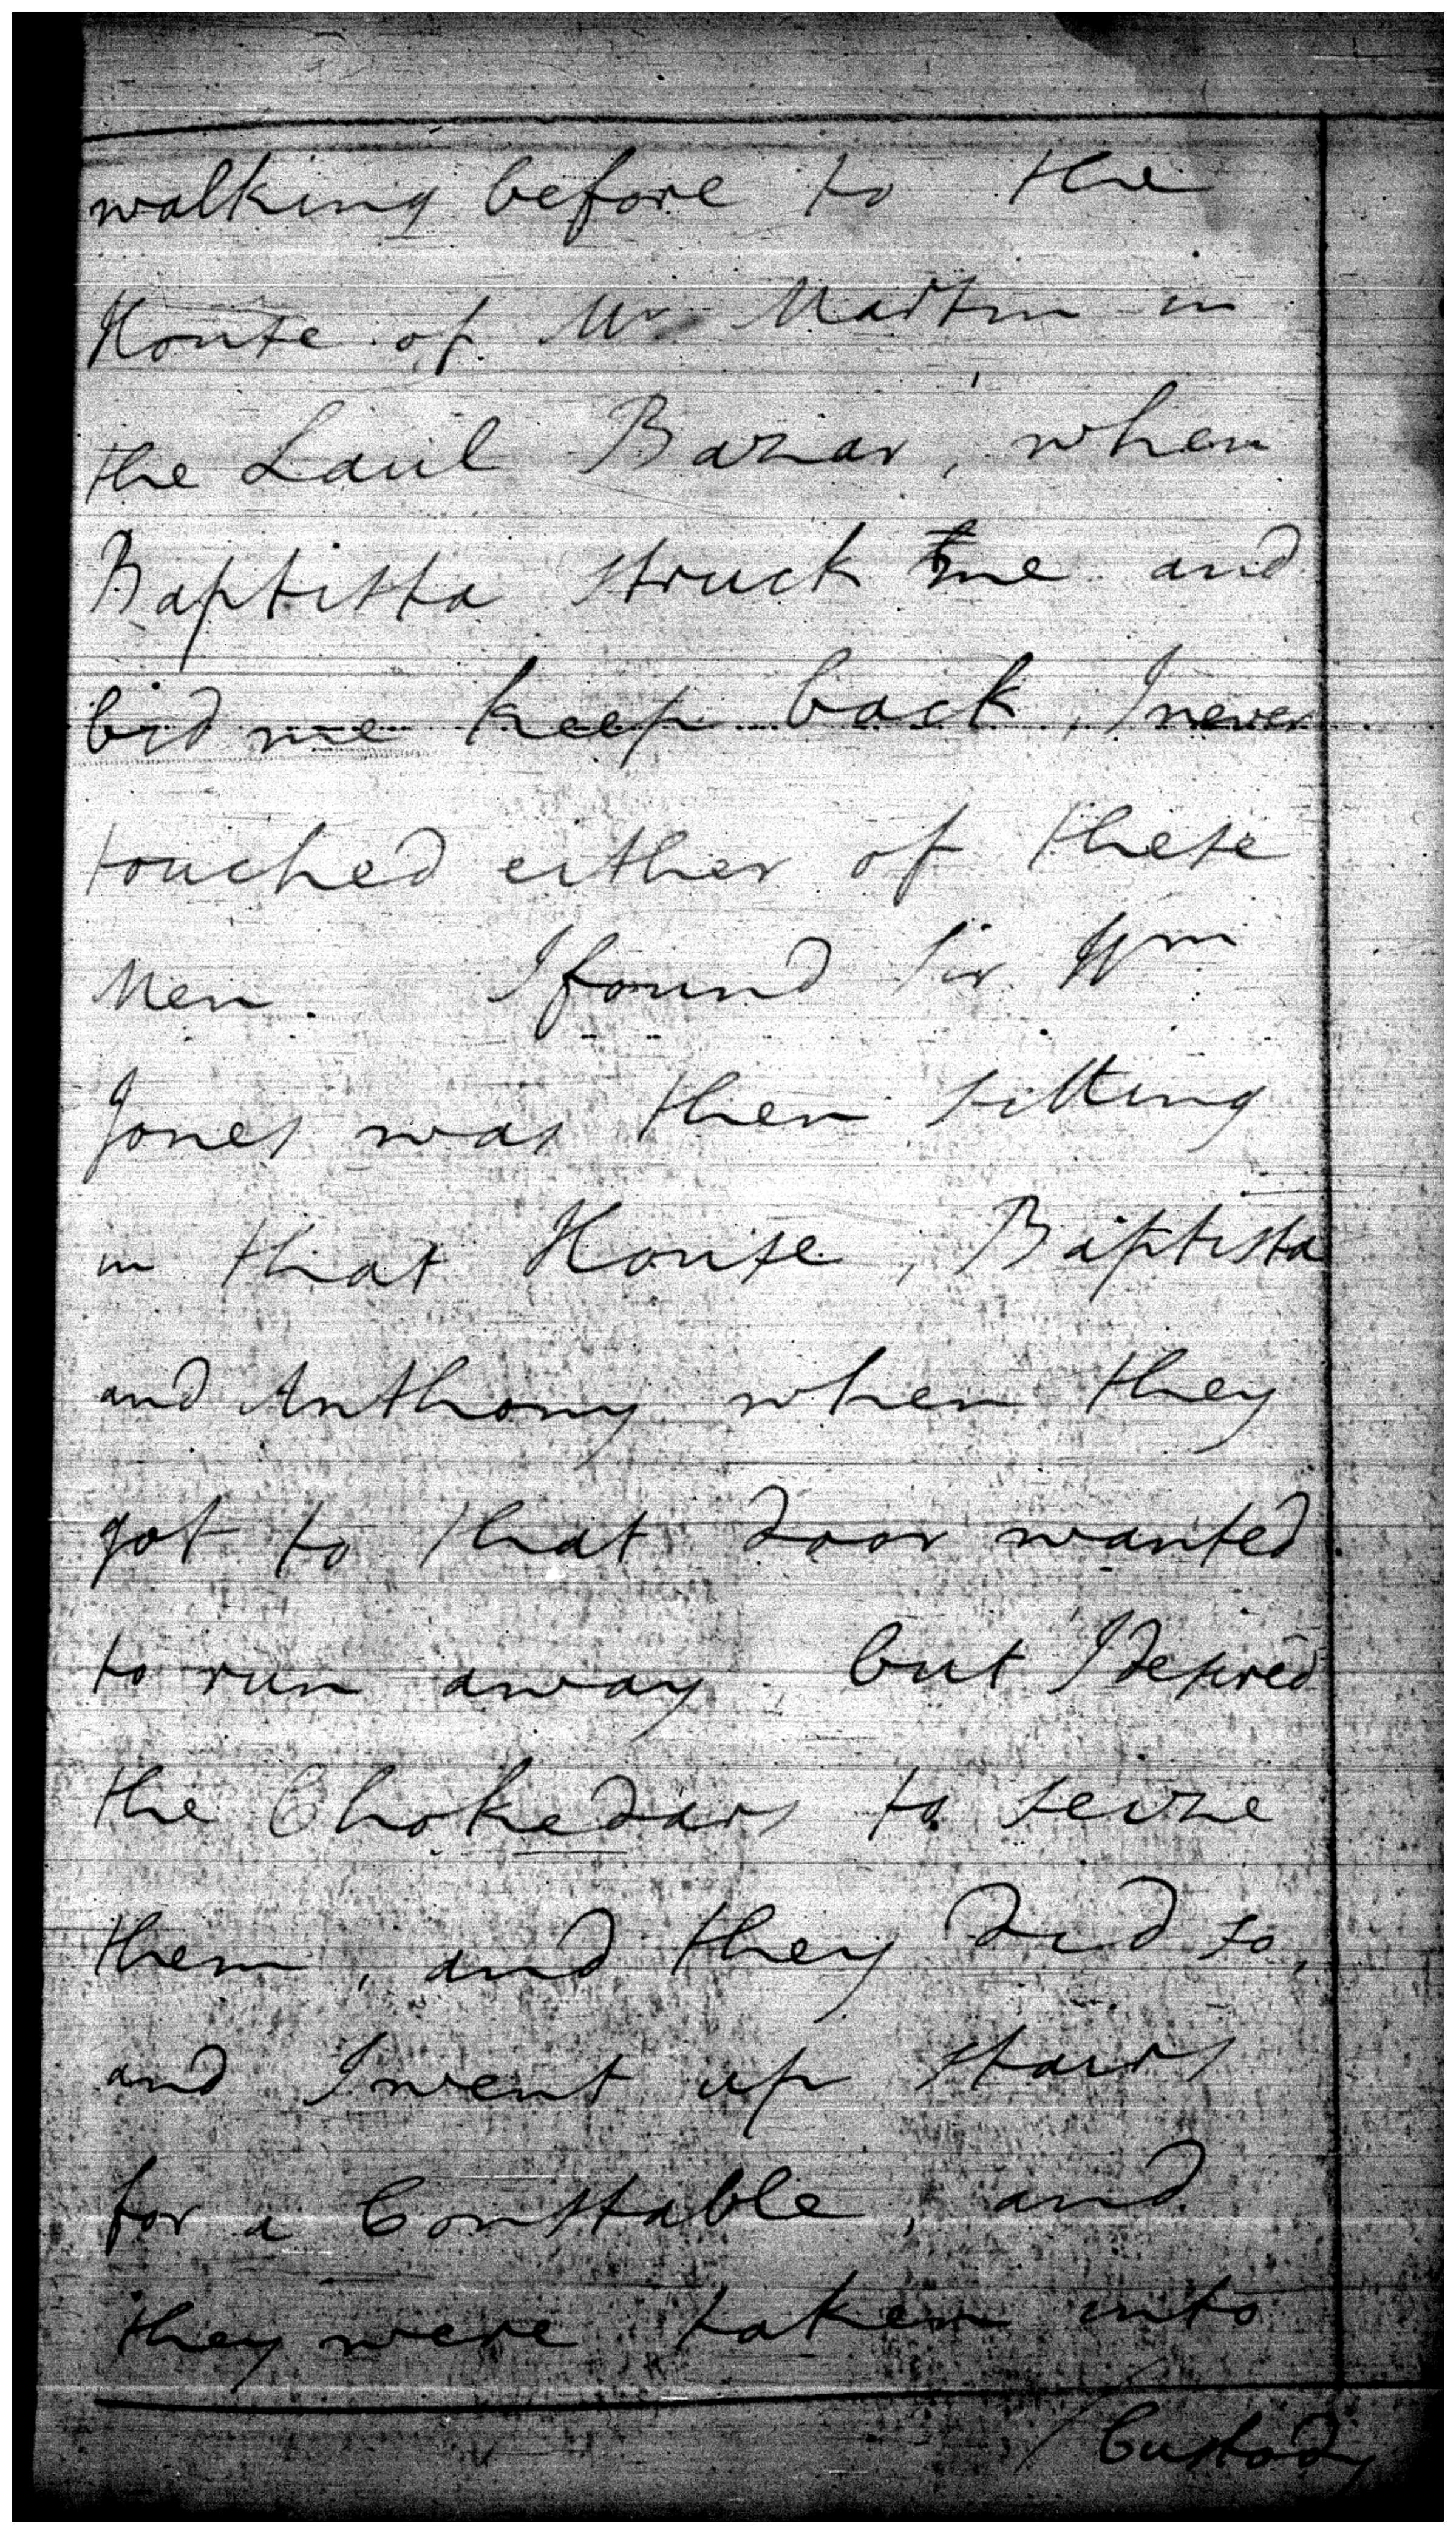 walking before to the
House of Mr Martin in
the Laul Bazar, when
Baptista struck me and
bid me keep back, I never
touched either of these
Men. I found Sir Wm
Jones was then sitting
in that House, Baptista
and Anthony when they
got to that door wanted
to run away but I desired
the Chokedars to seize
them, and they did so,
and I went up stairs
for a Constable, and
they were taken into
/ Custody